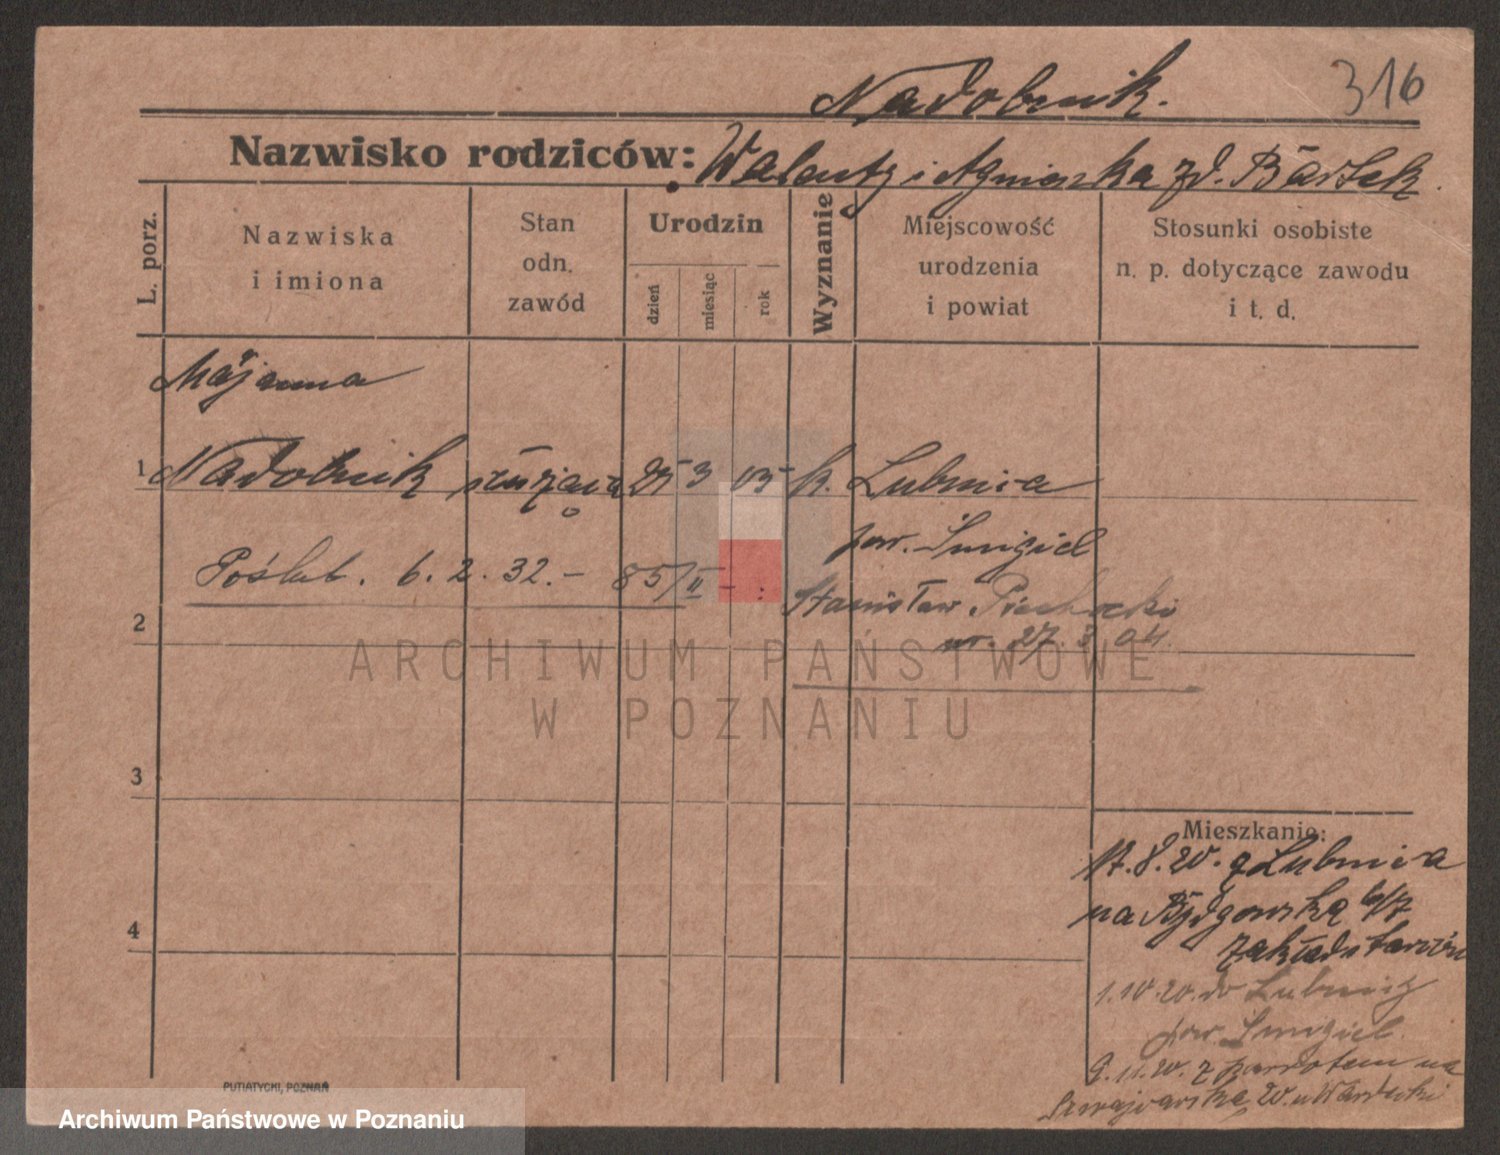 Nadobnik.
316
Nazwisko rodziców: Walenty i Agnieszka zd. Bartek.
L. porz.
Nazwiska
i imiona
Stan
odn.
zawód
Urodzin
dzień
miesiąc
rok
Wyznanie
Miejscowość
urodzenia
i powiat
Stosunki osobiste
n. p. dotyczące zawodu
i t. d.
Marjanna
1 Nadobnik służąca 25 3 05 k. Lubnica
pow. Śmigiel
Poślub. 6. 2. 32. – 85/II – :
Stanisław Piechocki
2
ur. 27. 3. 04.
ARCHIWUM PAŃSTWOWE
W POZNANIU
3
4
Mieszkanie:
17. 8. 20. z Lubnica
na Bydgowską 6/7
1. 10. 20. do Lubnicy
pow. Śmigiel.
9. 11. 20. z powrotem na
20. u
PUTIATYCKI, POZNAŃ
Archiwum Państwowe w Poznaniu